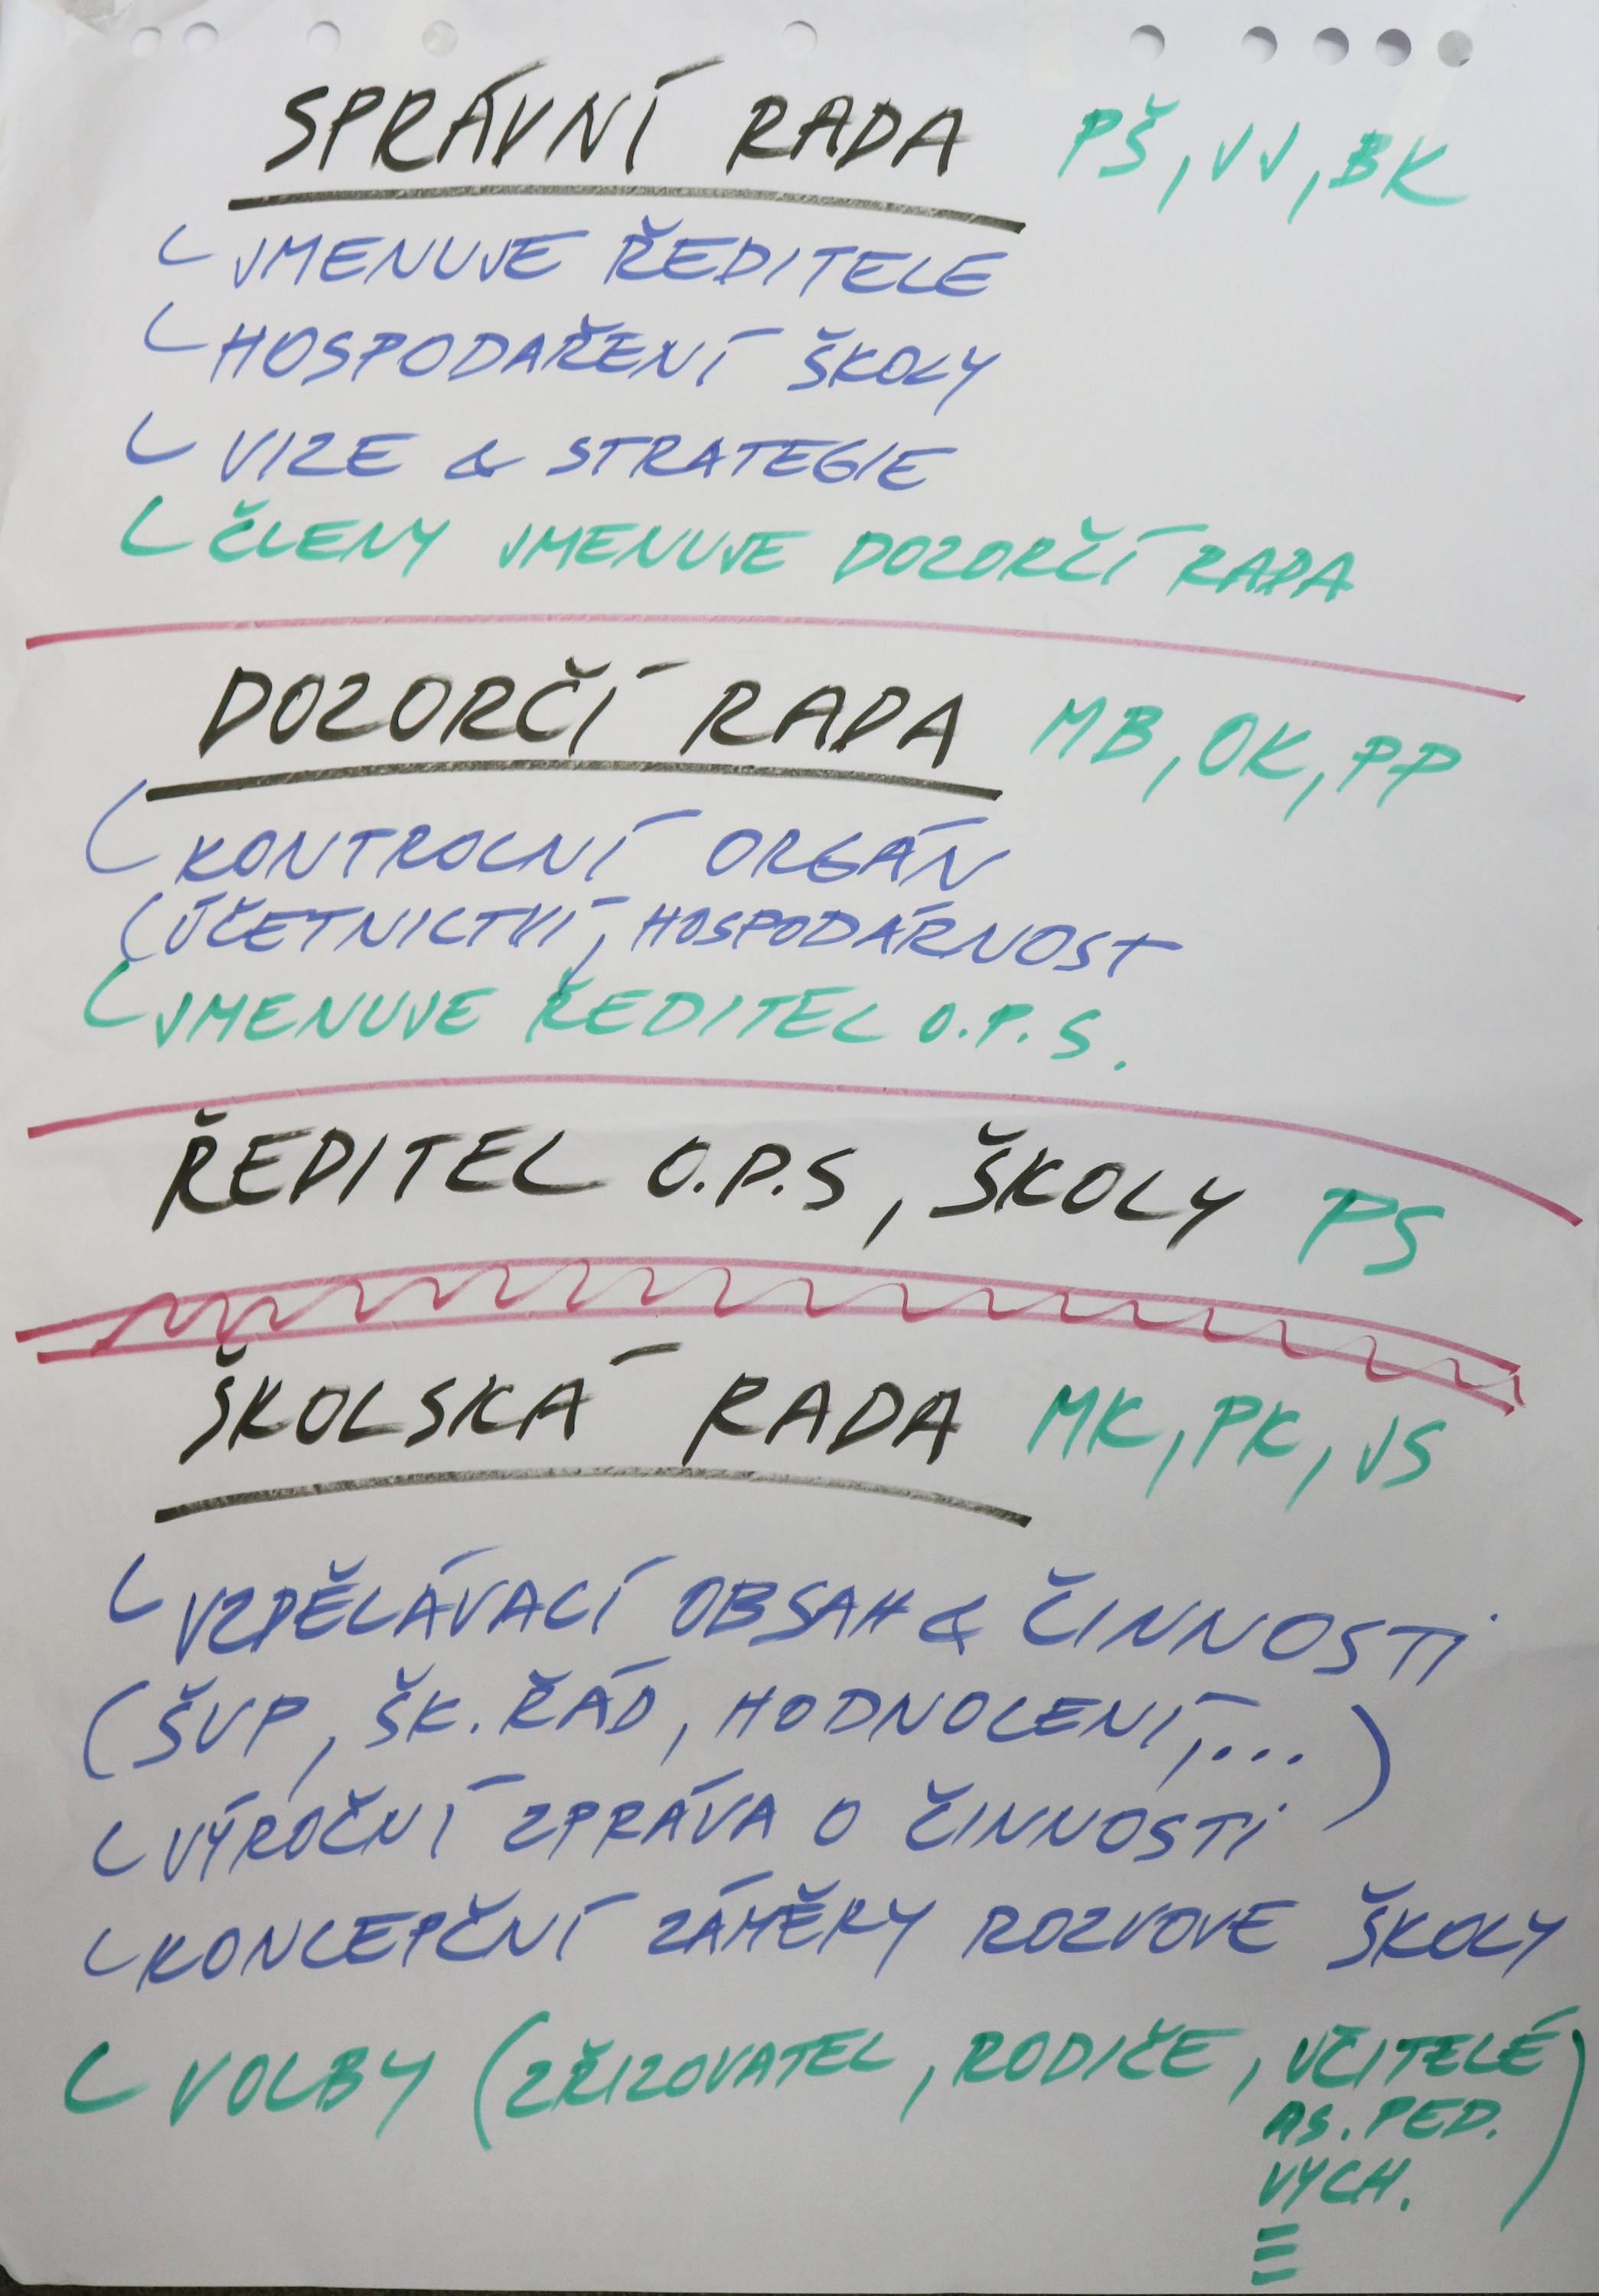 SPRÁVNÍ RADA PŠ, VV, BK
JMENUJE ŘEDITELE
HOSPODAŘENÍ ŠKOLY
VIZE & STRATEGIE
ČLENY JMENUJE DOZORČÍ RADA
DOZORČÍ RADA MB, OK, PP
KONTROLNÍ ORGÁN
(ÚČETNICTVÍ, HOSPODÁRNOST
JMENUJE ŘEDITEL O.P.S.
ŘEDITEL O.P.S, ŠKOLY PS
ŠKOLSKÁ RADA MK, PK, JS
VZDĚLÁVACÍ OBSAH & ČINNOSTI
(ŠVP, ŠK. ŘÁD, HODNOCENÍ, ...)
VÝROČNÍ ZPRÁVA O ČINNOSTI
KONCEPČNÍ ZÁMĚRY ROZVOVE ŠKOLY
VOLBY (ZŘIZOVATEL, RODIČE, UČITELÉ
AS. PED.
VYCH.)